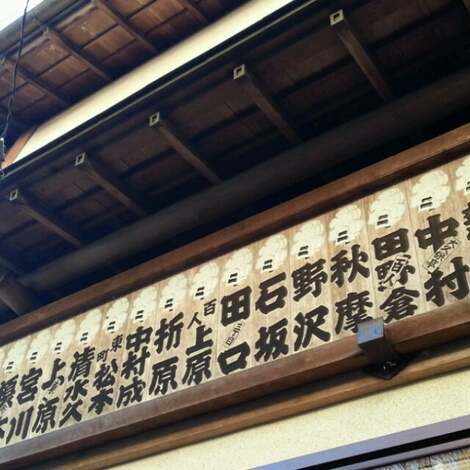 中村
田野倉
秋摩
野沢
石坂
田口
百人上原
折原
中村成
東町松本
清水久
上原
宮川